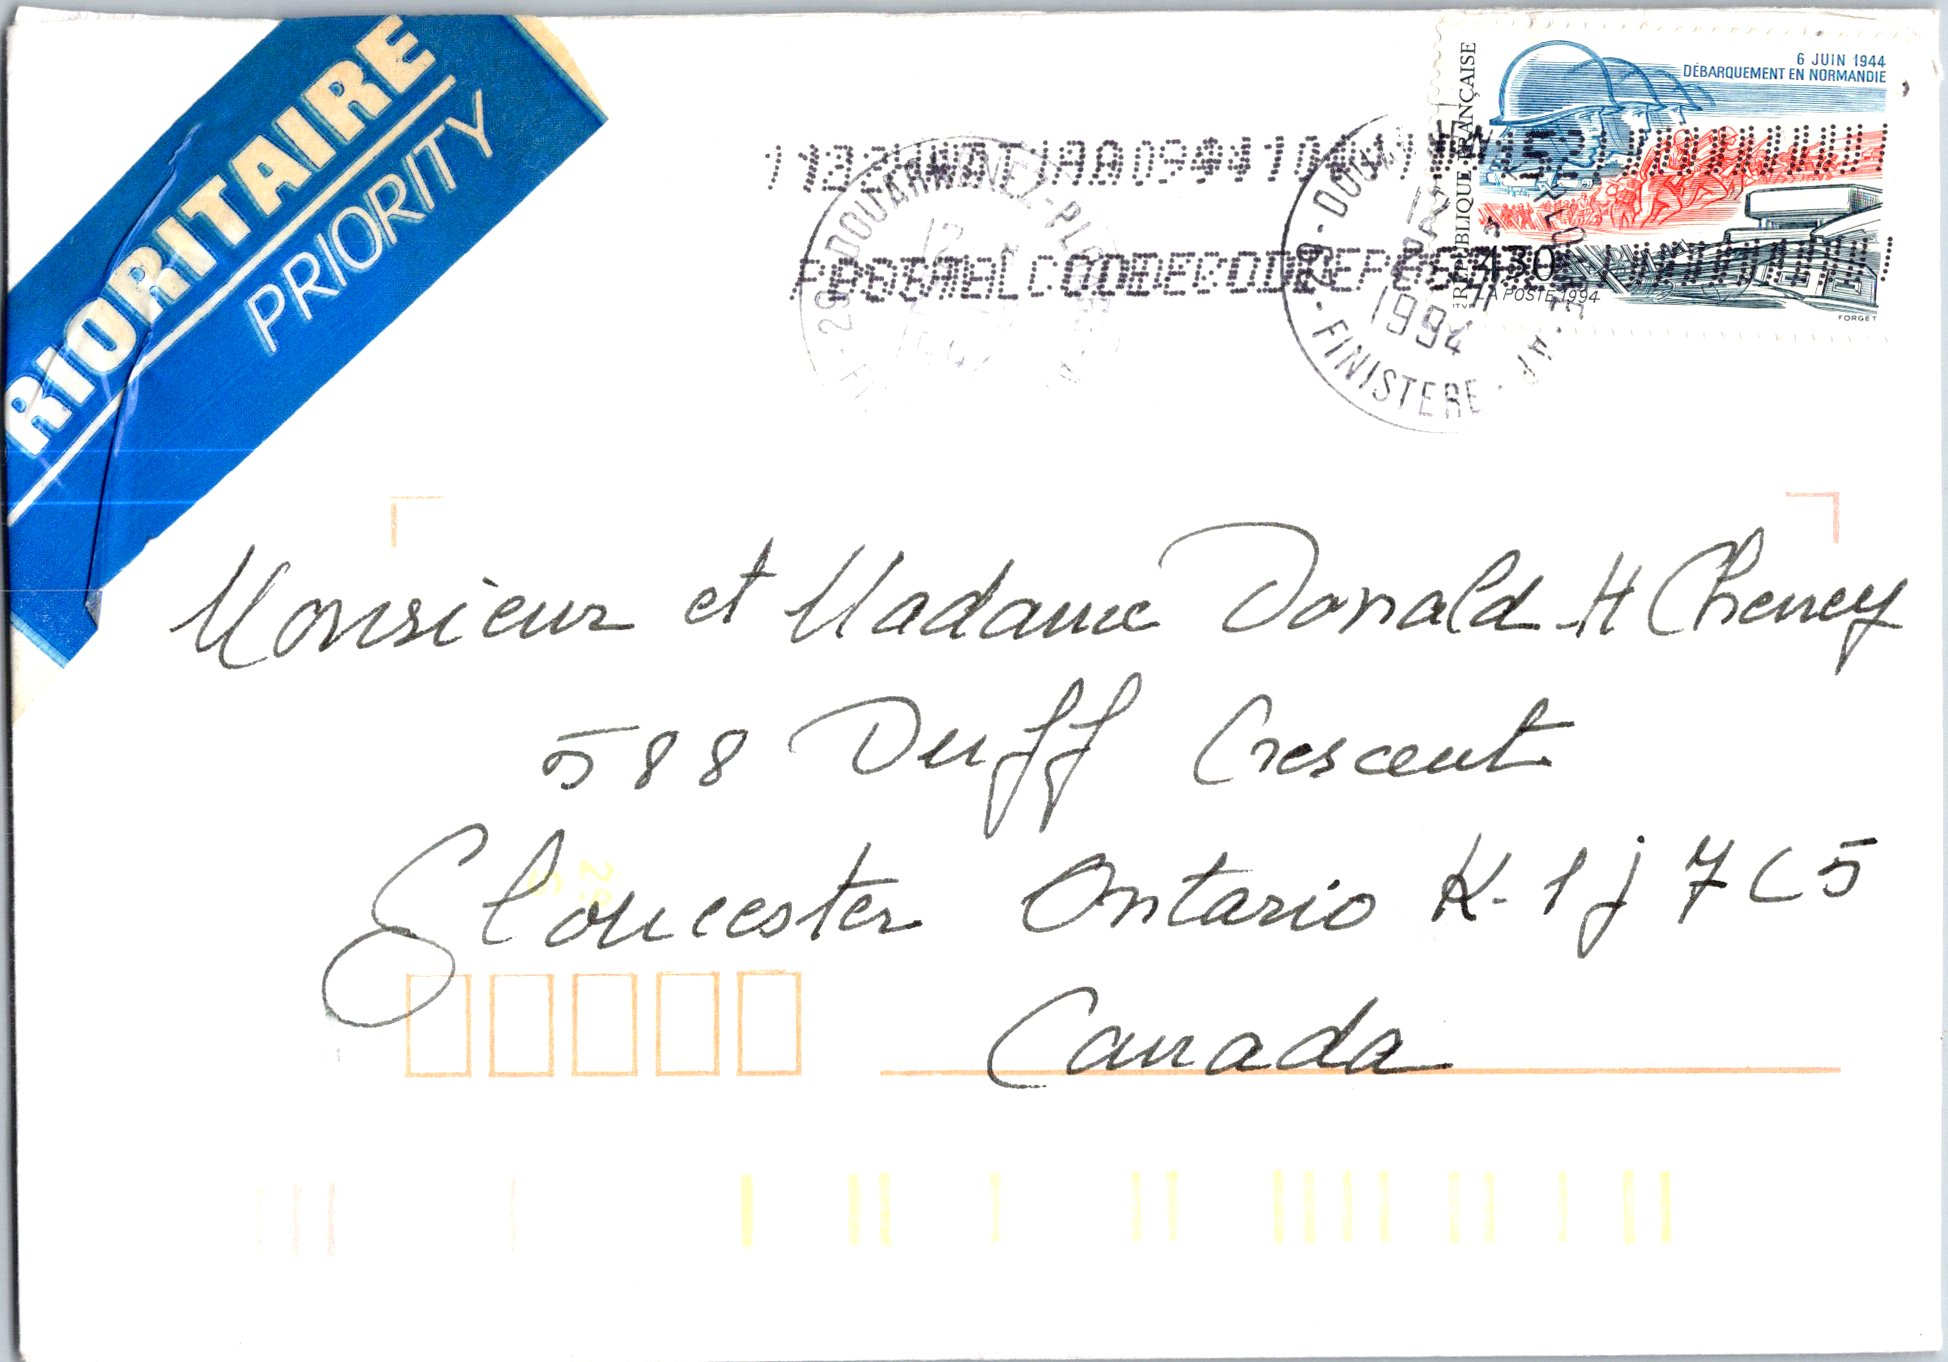 RIORITAIRE
PRIORITY
6 JUIN 1944
DÉBARQUEMENT EN NORMANDIE
RÉPUBLIQUE FRANÇAISE
4,30
LA POSTE 1994
FORGET
29 DOUARNENEZ-PL
12
29 - DOU
12
1994
FINISTERE
POSTAL CODE
Monsieur et Madame Donald H Cheney
588 Duff Crescent
Gloucester Ontario K-1j 7C5
Canada